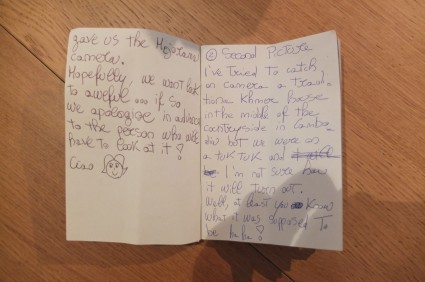 gave us the Mejorana
camera.
Hopefully, we wont look
to aweful ... if so
we apologise in advance
to the person who will
have to look at it !
Ciao
② Second Picture
I've tried to catch
on camera a tradi
tional Khmer house
in the middle of the
countryside in Cambo
dia but we were on
a tuk tuk and
I'm not sure how
it will turn out.
Well, at least you know
what it was supposed to
be haha !